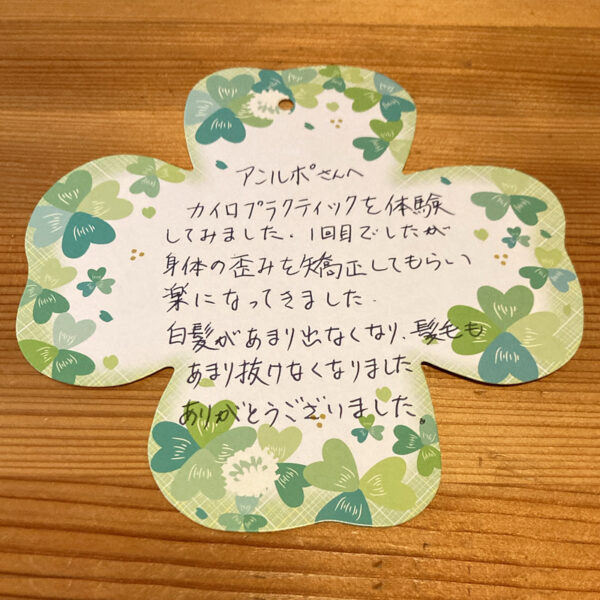 アンルポさんへ
カイロプラクティックを体験
してみました。1回目でしたが
身体の歪みを矯正してもらい
楽になってきました。
白髪があまり出なくなり、髪毛も
あまり抜けなくなりました
ありがとうございました。